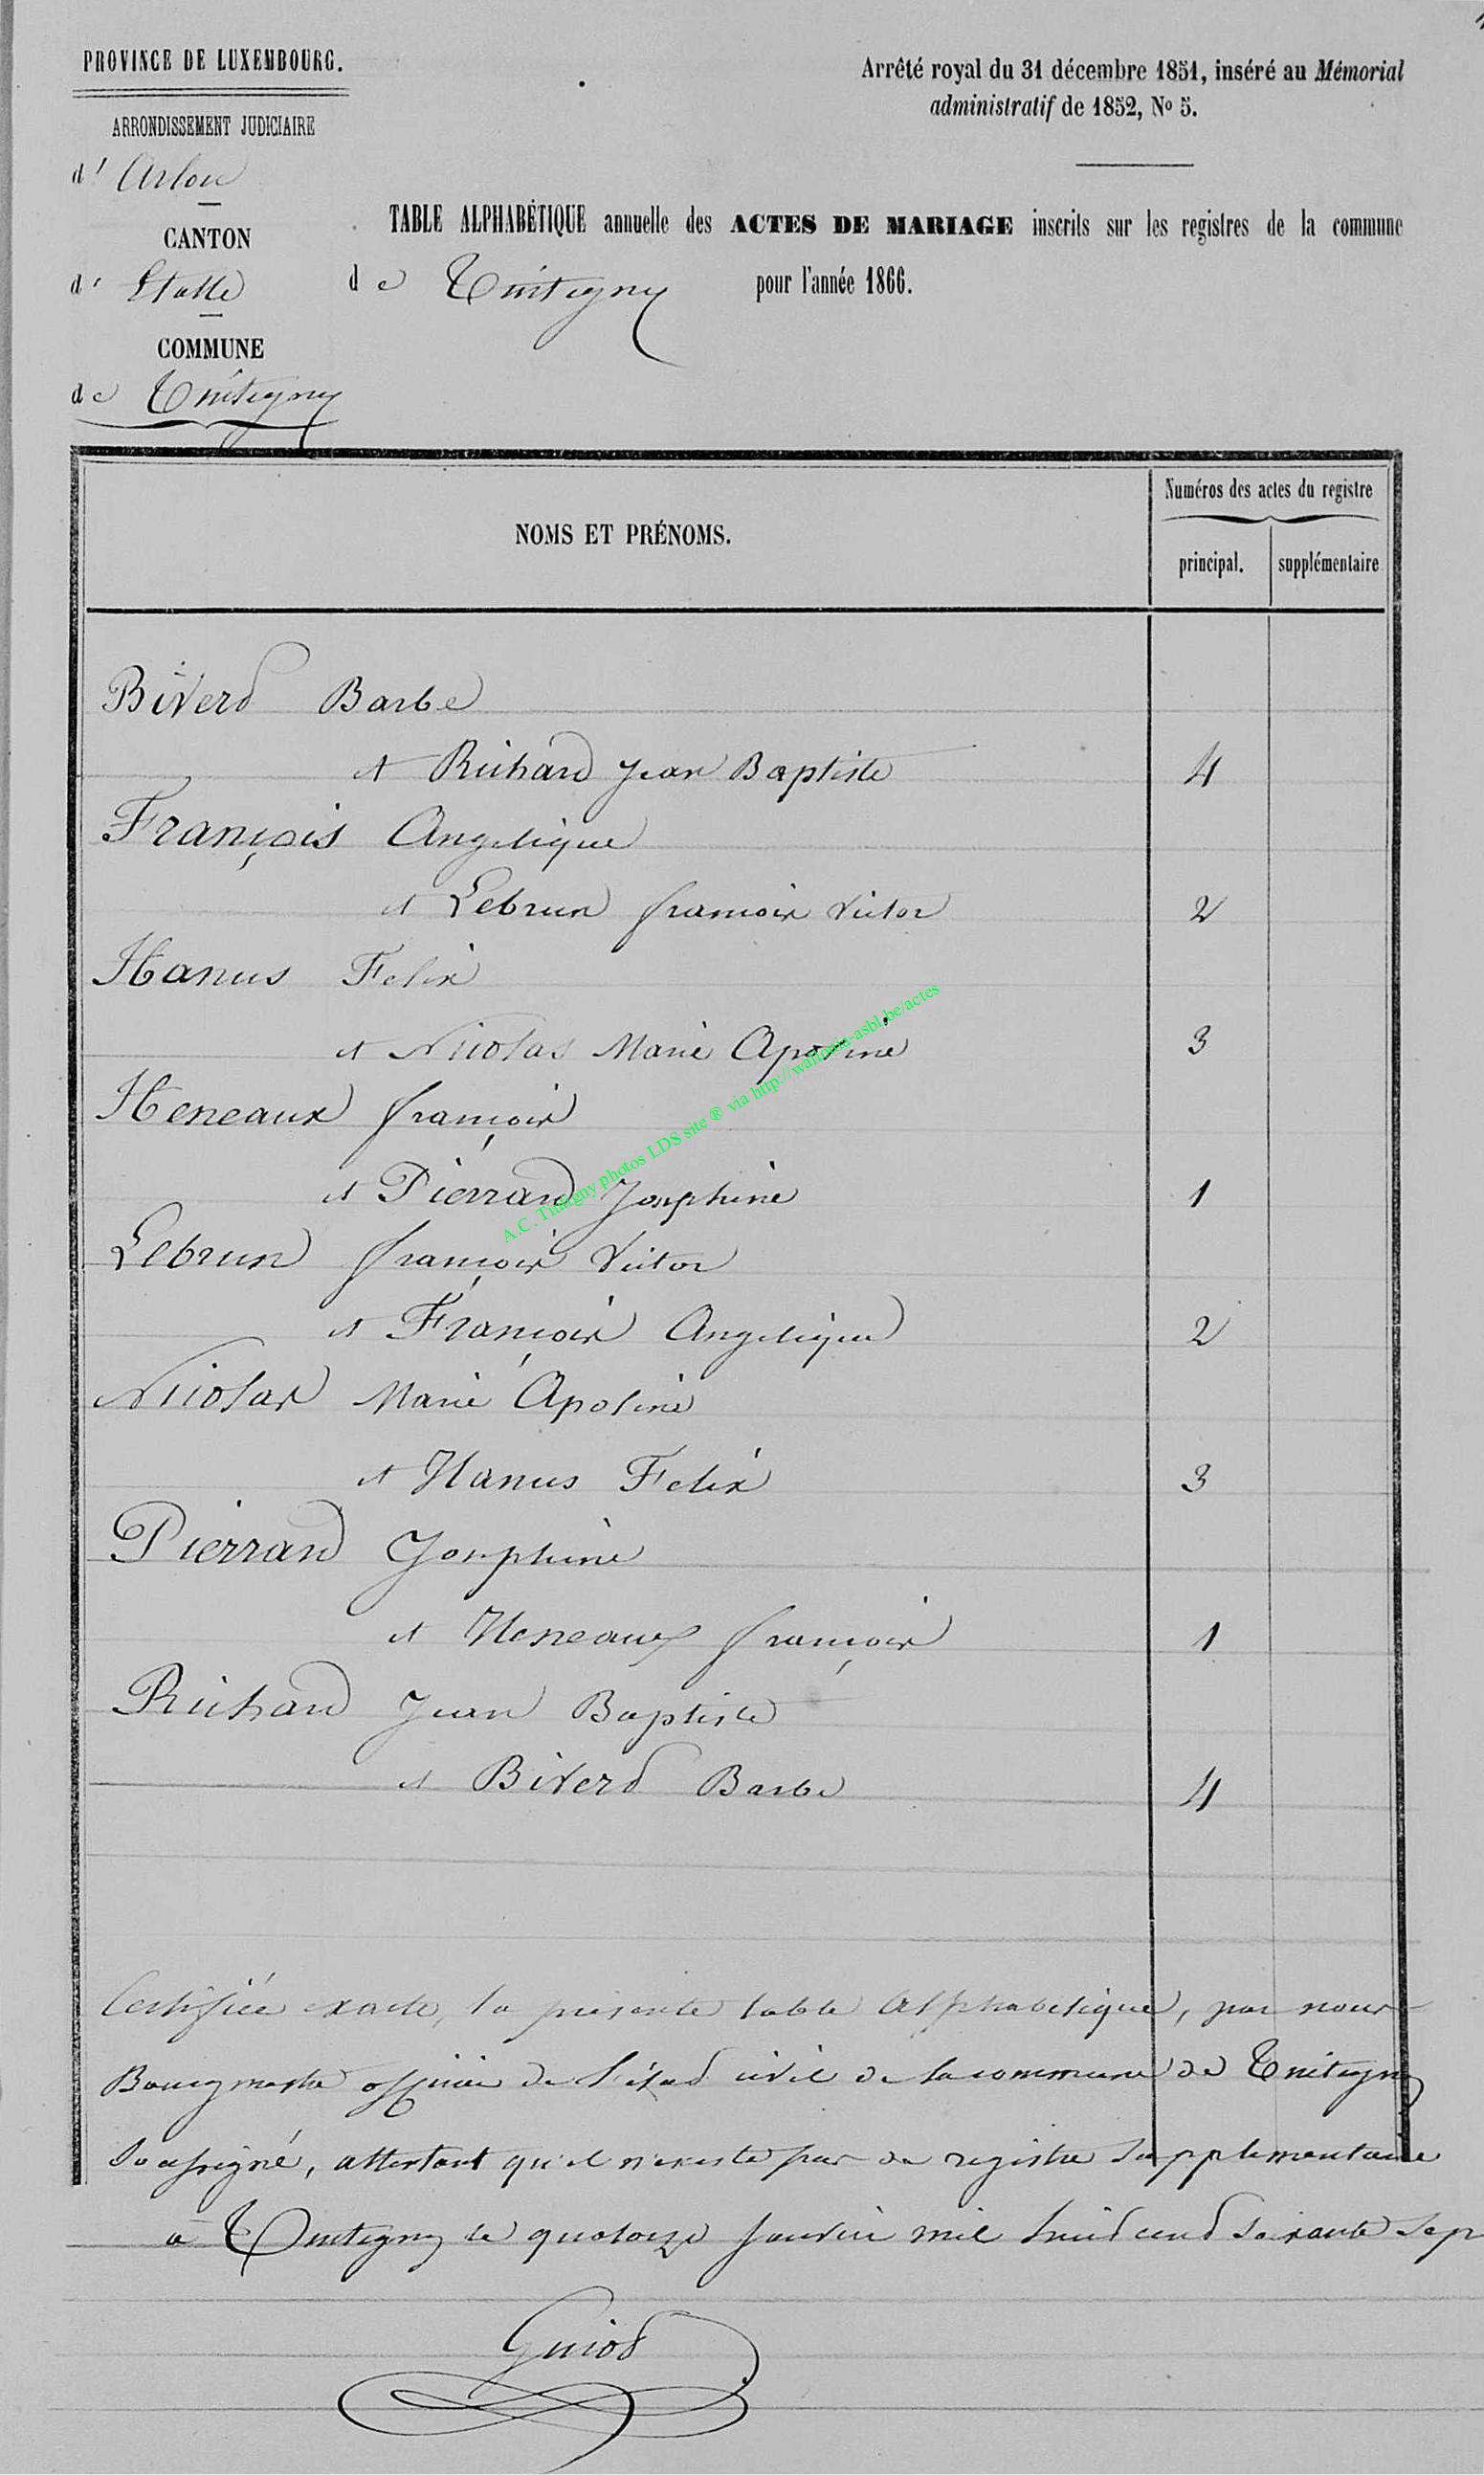 PROVINCE DE LUXEMBOURG.
ARRONDISSEMENT JUDICIAIRE
d' Arlon
CANTON
d' Etalle
COMMUNE
de Tintigny
Arrêté royal du 31 décembre 1851, inséré au Mémorial
administratif de 1852, No 5.
TABLE ALPHABÉTIQUE annuelle des ACTES DE MARIAGE inscrits sur les registres de la commune
de Tintigny pour l'année 1866.
NOMS ET PRÉNOMS.
Numéros des actes du registre
principal. supplémentaire
Biverd Barbe
et Richard Jean Baptiste 4
François Angelique
et Lebrun francois Victor 2
Hanus Felix
et Nicolas Marie Apoline 3
Heneaux françois
et Pierrard Josephine 1
Lebrun françois Victor
et François Angelique 2
Nicolas Marie Apoline
et Hanus Felix 3
Pierrard Josephine
et Heneaux françois 1
Richard Jean Baptiste
et Biverd Barbe 4
Certifiée exacte, la présente table alphabetique, par nous
Bourgmestre officier de l'état civil de la commune de Tintigny
soussigné, attestant qu'il n'existe pas de registre supplementaire
à Tintigny le quatorze janvier mil huit cent soixante sept
Guiot
A.C. Tintigny photos LDS site ® via http://wallonia-asbl.be/actes